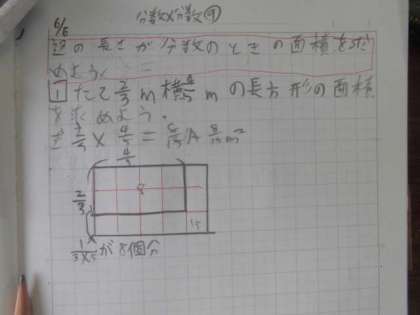 6/6
分数×分数④
辺の長さが分数のときの面積を求
めよう。
1 たて2/3m横4/5mの長方形の面積
を求めよう。
式 2/3 × 4/5 = 8/15 A 8/15 m²
4/5
8
2/3
15
1/3×5が8個分